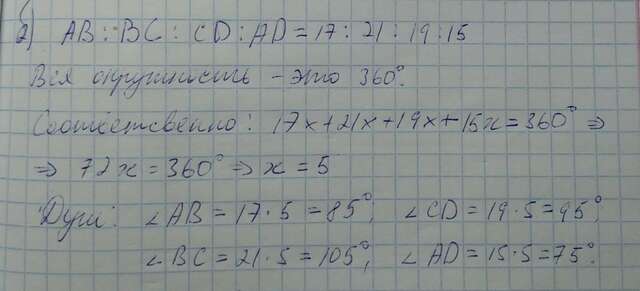 б) AB : BC : CD : AD = 17 : 21 : 19 : 15
Вся окружность - это 360°.
Соответственно: 17x+21x+19x+15x=360° ⇒
⇒ 72x = 360° ⇒ x = 5
Дуги: ∠AB = 17·5 = 85°; ∠CD = 19·5 = 95°;
∠BC = 21·5 = 105°; ∠AD = 15·5 = 75°.